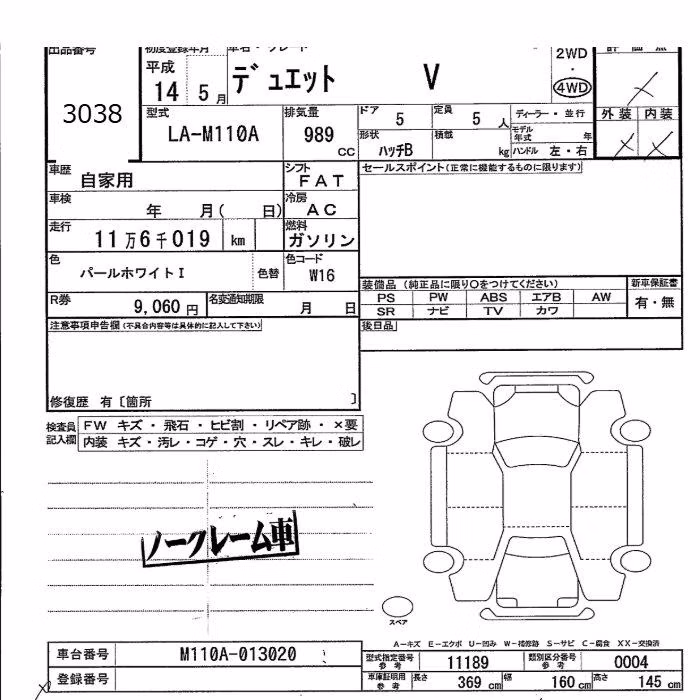 出品番号 初度登録年月 車名・グレード 2WD 評価点
平成 ・
3038 14 5月 デュエット V 4WD
型式 排気量 ドア 5 定員 5人 ディーラー・並行 外装 内装
LA-M110A 989 cc 形状 ハッチB 積載 kg モデル年式 年
ハンドル 左・右
車歴 自家用 シフト FAT セールスポイント(正常に機能するものに限ります)
車検 年 月( 日) 冷房 AC
走行 11万6千019 km 燃料 ガソリン
色 パールホワイトI 色替 色コード W16
装備品 (純正品に限り○をつけてください) 新車保証書
R券 9,060円 名変通知期限 月 日 PS PW ABS エアB AW 有・無
SR ナビ TV カワ
注意事項申告欄(不具合内容等は具体的に記入して下さい) 後日品
修復歴 有〔箇所 〕
検査員記入欄 FW キズ・飛石・ヒビ割・リペア跡・×要
内装 キズ・汚レ・コゲ・穴・スレ・キレ・破レ
ノークレーム車
スペア
A-キズ E-エクボ U-凹み W-補修跡 S-サビ C-腐食 XX-交換済
車台番号 M110A-013020 型式指定番号参考 11189 類別区分番号参考 0004
登録番号 車庫証明用参考 長さ 369cm 幅 160cm 高さ 145cm